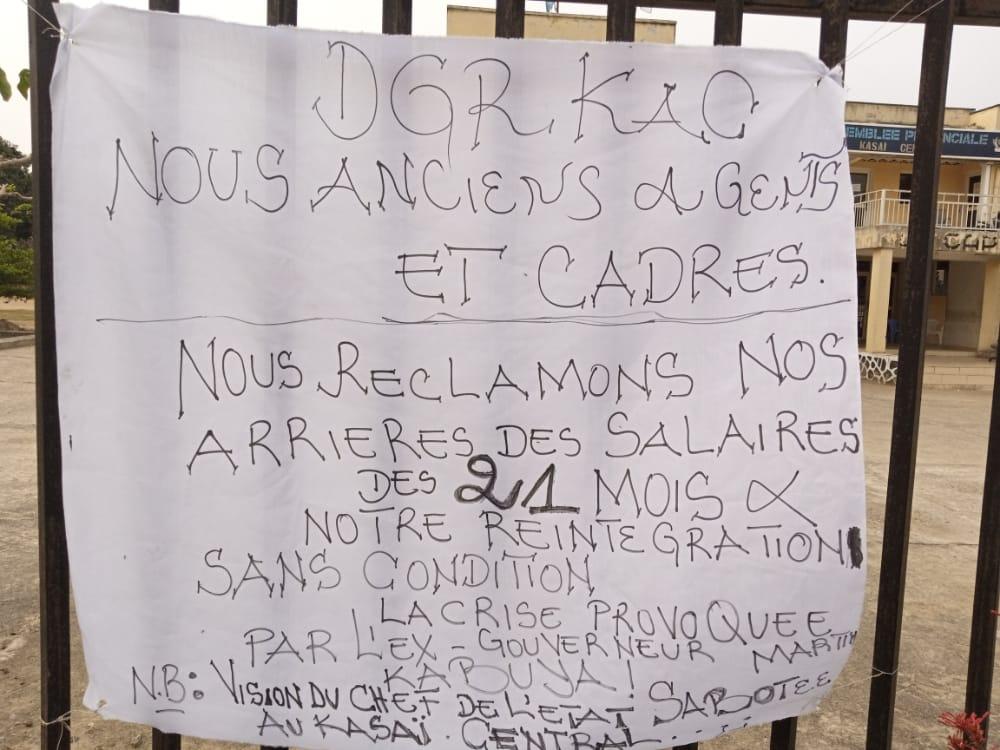 DGR. KAC
NOUS ANCIENS AGENTS
ET CADRES.
NOUS RECLAMONS NOS
ARRIERES DES SALAIRES
DES 21 MOIS &
NOTRE REINTEGRATION
SANS CONDITION
LA CRISE PROVOQUEE
PAR L'EX-GOUVERNEUR MARTIN
KABUYA!
N.B: VISION DU CHEF DE L'ETAT SABOTEE
AU KASAÏ CENTRAL...
EMBLEE PR NCIALE
KASAI CE